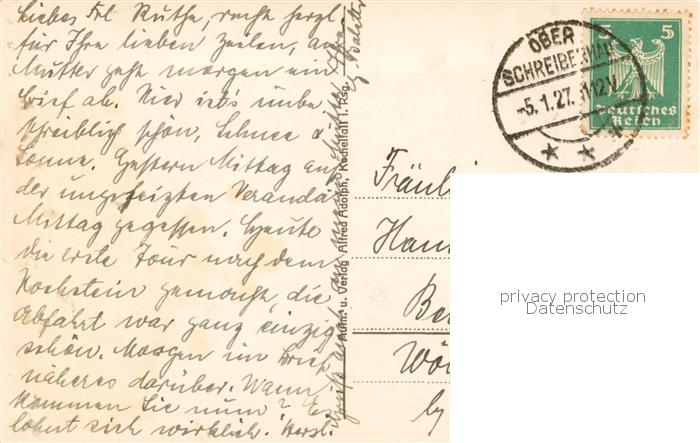 Liebes Frl Ruthe, recht herzl
für Ihre lieben Zeilen, an
Mutter geht morgen ein
Brief ab. Hier ist's unbe
schreiblich schön, Schnee u
Sonne. Gestern Mittag auf
der ungeheizten Veranda
Mittag gegessen. Heute
die erste Tour nach dem
Hochstein gemacht, die
Abfahrt war ganz einzig
schön. Morgen im Brief
näheres darüber. Wann
kommen Sie nun? Es
lohnt sich wirklich. Herzl.
Aufn. u. Verlag Alfred Adolph, Kochelfall i. Rsg.
OBER
SCHREIBERHAU
-5.1.27. 11-12V.
5 5
Deutsches
Reich
Fräulei
Han
Be
privacy protection
Datenschutz